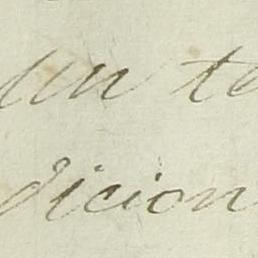 un te
dicion